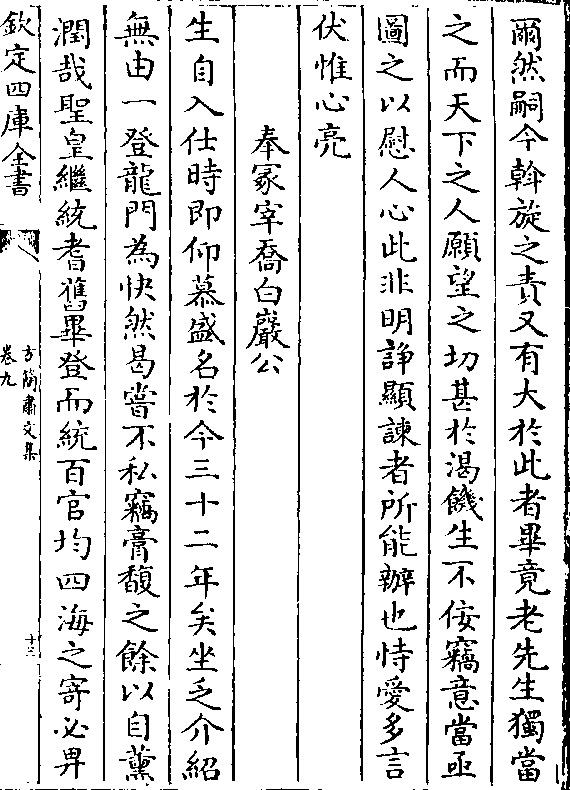 爾然嗣今斡旋之責又有大於此者畢竟老先生獨當
之而天下之人願望之切甚於渴饑生不佞竊意當亟
圖之以慰人心此非明諍顯諫者所能辦也恃愛多言
伏惟心亮
奉冢宰喬白巖公
生自入仕時即仰慕盛名於今三十二年矣坐乏介紹
無由一登龍門為快然曷嘗不私竊膏馥之餘以自薰
潤哉聖皇繼統耆舊畢登而統百官均四海之寄必畀
欽定四庫全書
方簡肅文集
卷九
十三